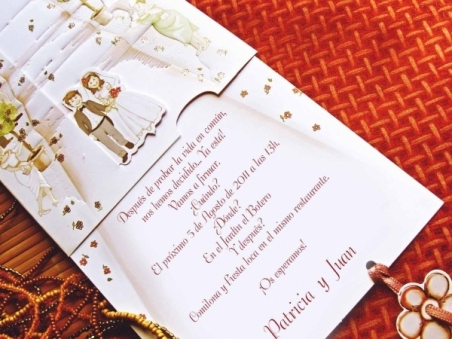 Después de probar la vida en común,
nos hemos decidido... Ya está!
Vamos a firmar.
¿Cuándo?
El próximo 5 de Agosto de 2011 a las 13h.
¿Dónde?
En el Jardín el Botero
Y después?
Comilona y fiesta loca en el mismo restaurante.
¡Os esperamos!
Patricia y Juan